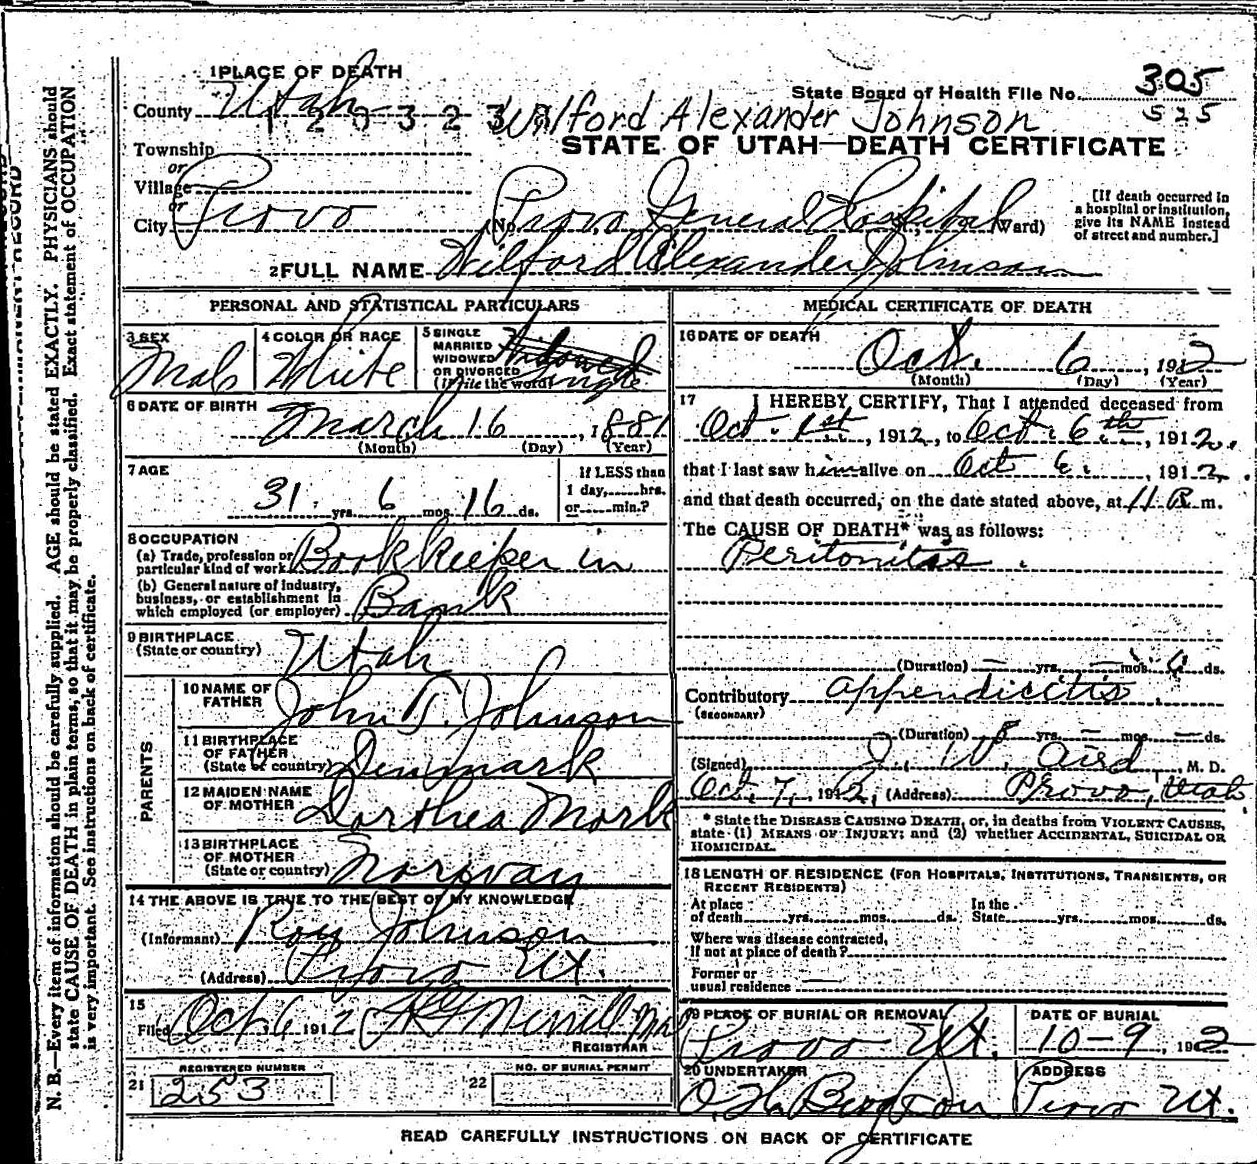 1 PLACE OF DEATH
County Utah
State Board of Health File No. 305
525
Wilford Alexander Johnson
Township
STATE OF UTAH—DEATH CERTIFICATE
or
Village
or
City Provo (No. Provo General Hospital St.; Ward)
[If death occurred in a hospital or institution, give its NAME instead of street and number.]
2 FULL NAME Wilford Alexander Johnson
PERSONAL AND STATISTICAL PARTICULARS
3 SEX Male
4 COLOR OR RACE White
5 SINGLE MARRIED WIDOWED OR DIVORCED (Write the word) Widowed Single
6 DATE OF BIRTH March 16, 1881
(Month) (Day) (Year)
7 AGE 31 yrs. 6 mos. 16 ds.
If LESS than 1 day,......hrs. or......min.?
8 OCCUPATION
(a) Trade, profession or particular kind of work Book Keeper in
(b) General nature of industry, business, or establishment in which employed (or employer) Bank
9 BIRTHPLACE (State or country) Utah
PARENTS
10 NAME OF FATHER John T. Johnson
11 BIRTHPLACE OF FATHER (State or country) Denmark
12 MAIDEN NAME OF MOTHER Dorthea Mork
13 BIRTHPLACE OF MOTHER (State or country) Norway
14 THE ABOVE IS TRUE TO THE BEST OF MY KNOWLEDGE
(Informant) Roy Johnson
(Address) Provo Ut.
15
Filed Oct 6 1912 Merrill
REGISTRAR
REGISTERED NUMBER
21 253
NO. OF BURIAL PERMIT
22
MEDICAL CERTIFICATE OF DEATH
16 DATE OF DEATH
Oct. 6, 1912
(Month) (Day) (Year)
17 I HEREBY CERTIFY, That I attended deceased from
Oct. 1st, 1912, to Oct. 6th, 1912.
that I last saw him alive on Oct 6, 1912
and that death occurred, on the date stated above, at 11 m.
The CAUSE OF DEATH* was as follows:
Peritonitas
(Duration) — yrs. — mos. ds.
Contributory appendicitis
(SECONDARY)
(Duration) yrs. — mos. — ds.
(Signed) J. W. Aird, M. D.
Oct. 7, 1912, (Address) Provo, Utah
* State the DISEASE CAUSING DEATH, or, in deaths from VIOLENT CAUSES,
state (1) MEANS OF INJURY; and (2) whether ACCIDENTAL, SUICIDAL OR
HOMICIDAL.
18 LENGTH OF RESIDENCE (FOR HOSPITALS, INSTITUTIONS, TRANSIENTS, OR
RECENT RESIDENTS)
At place of death yrs. mos. ds. In the State yrs. mos. ds.
Where was disease contracted,
if not at place of death?
Former or
usual residence
19 PLACE OF BURIAL OR REMOVAL
Provo Ut.
DATE OF BURIAL
10-9, 1912
20 UNDERTAKER
ADDRESS
Provo Ut.
READ CAREFULLY INSTRUCTIONS ON BACK OF CERTIFICATE
N. B.—Every item of information should be carefully supplied. AGE should be stated EXACTLY. PHYSICIANS should
state CAUSE OF DEATH in plain terms, so that it may be properly classified. Exact statement of OCCUPATION
is very important. See instructions on back of certificate.